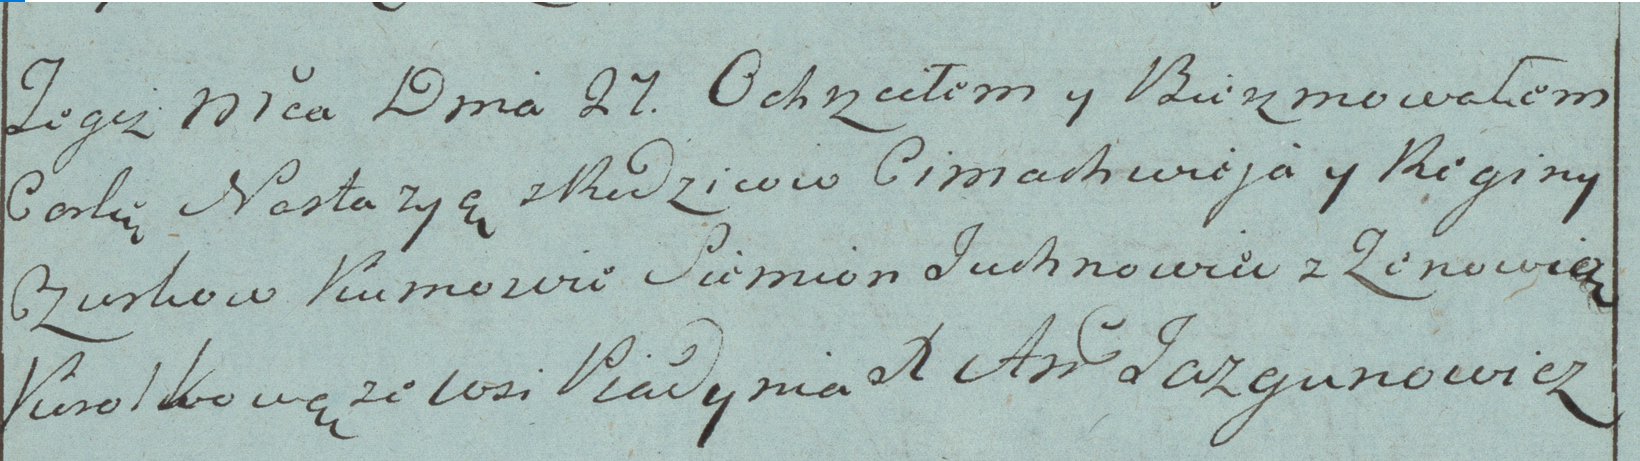 Tegiż Mca Dnia 27. Ochrzciłem y Bierzmowałem
Corkę Nastazyą z Rodzicow Cimachwieja y Reginy
Czurkow Kumowie Siemion Juchnowicz z Zenowią
Kurolkową ze wsi Piadynia X Ant Jazgunowicz